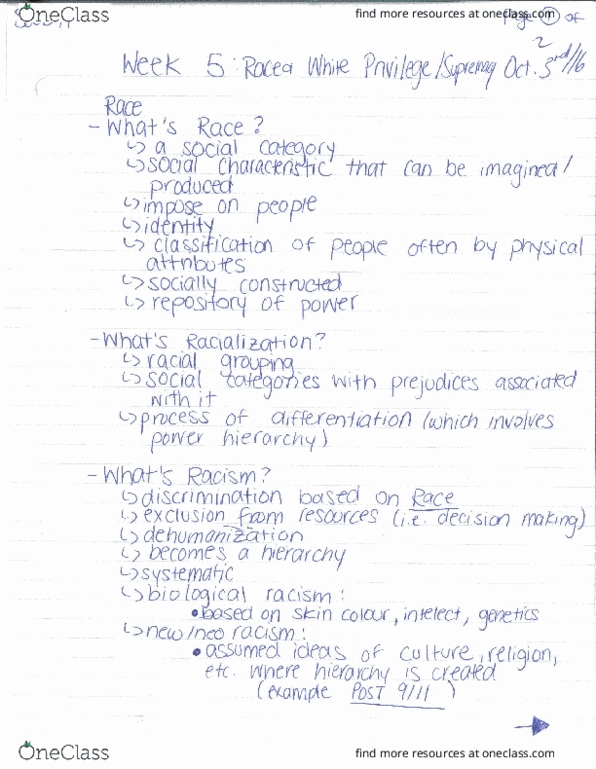 OneClass
find more resources at oneclass.com
Page 1 of
2
Week 5: Race & White Privilege/Supremacy Oct. 3rd/16
Race
- What's Race?
↳ a social category
↳ social characteristic that can be imagined/
produced
↳ impose on people
↳ identity
↳ classification of people often by physical
attributes
↳ socially constructed
↳ repository of power
- What's Racialization?
↳ racial grouping
↳ social categories with prejudices associated
with it
↳ process of differentiation (which involves
power hierarchy)
- What's Racism?
↳ discrimination based on Race
↳ exclusion from resources (i.e. decision making)
↳ dehumanization
↳ becomes a hierarchy
↳ systematic
↳ biological racism:
• based on skin colour, intelect, genetics
↳ new/neo racism:
• assumed ideas of culture, religion,
etc. where hierarchy is created
(example POST 9/11)
OneClass
find more resources at oneclass.com